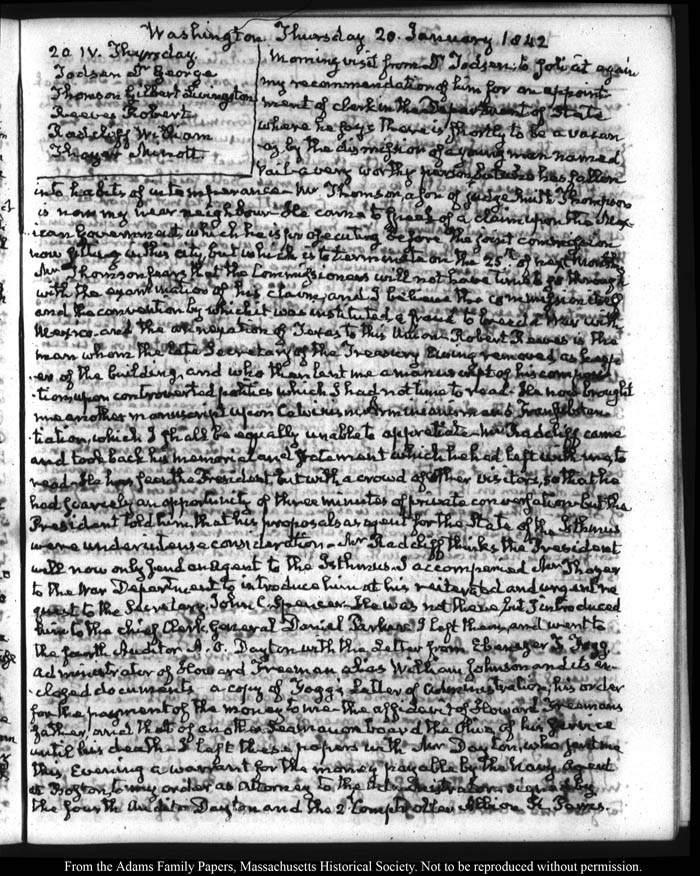 Washington Thursday 20. January 1842
20. IV. Thursday
Todsen Dr George
Thomson Gilbert Livingston
Reeves Robert
Radcliff William
Thayer Minott.
Morning visit from Dr Todsen to solicit again
my recommendation of him for an appoint-
ment of clerk in the Department of State
where he says there is shortly to be a vacan-
cy by the dismission of a young man named
Vail a very worthy person, but who has fallen
into habits of intemperance. Mr Thomson a son of Judge Smith Thompson
is now my near neighbour. He came to speak of a claim upon the Mex-
ican Government which he is prosecuting before the joint commission
now sitting in this city, but which is to terminate on the 25th of next Month.
Mr Thomson fears that the Commissioners will not have time to go through
with the examination of his claim, and I believe the commission itself
and the convention by which it was instituted a fraud to breed a War with
Mexico and the annexation of Texas to this Union. Robert Reeves is the
man whom the late Secretary of the Treasury Ewing removed as keep-
er of the building, and who then lent me a manuscript of his composi-
tion upon controverted politics which I had not time to read. He now brought
me another manuscript upon Calvinism Arminianism and Transubstan-
tiation, which I shall be equally unable to appreciate. Mr Radcliff came
and took back his memorial and statement which he had left with me, to
read. He has seen the President, but with a crowd of other visitors, so that he
had scarcely an opportunity of three minutes of private conversation but the
President told him that his proposals as agent for the State of the Isthmus
were under intense consideration. Mr Radcliff thinks the President
will now only send an Agent to the Isthmus. I accompanied Mr Thayer
to the War Department to introduce him at his reiterated and urgent re-
quest to the Secretary John C. Spencer. He was not there, but I introduced
him to the chief Clerk General Daniel Parker. I left them, and went to
the fourth Auditor A. O. Dayton with the Letter from Ebenezer T. Fogg
administrator of Howard Freeman alias William Johnson and its en-
closed documents a copy of Fogg's Letter of administration, his order
for the payment of the money to me. the affidavit of Howard Freemans
father, and that of another Seaman on board the Ohio, of his service
until his death. I left these papers with Mr Dayton, who sent me
this Evening a warrant for the money payable by the Navy Agent
at Boston, to my order as Attorney to the Administrator signed by
the fourth Auditor Dayton and the 2d Comptroller Albion K. Parris.
From the Adams Family Papers, Massachusetts Historical Society. Not to be reproduced without permission.